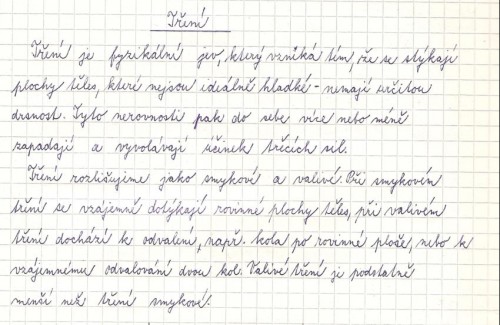 Tření
Tření je fyzikální jev, který vzniká tím, že se stýkají
plochy těles, které nejsou ideálně hladké - nemají určitou
drsnost. Tyto nerovnosti pak do sebe více nebo méně
zapadají a vyvolávají účinek třecích sil.
Tření rozlišujeme jako smykové a valivé. Při smykovém
tření se vzájemně dotýkají rovinné plochy těles, při valivém
tření dochází k odvalení, např. kola po rovinné ploše, nebo k
vzájemnému odvalování dvou kol. Valivé tření je podstatně
menší než tření smykové.